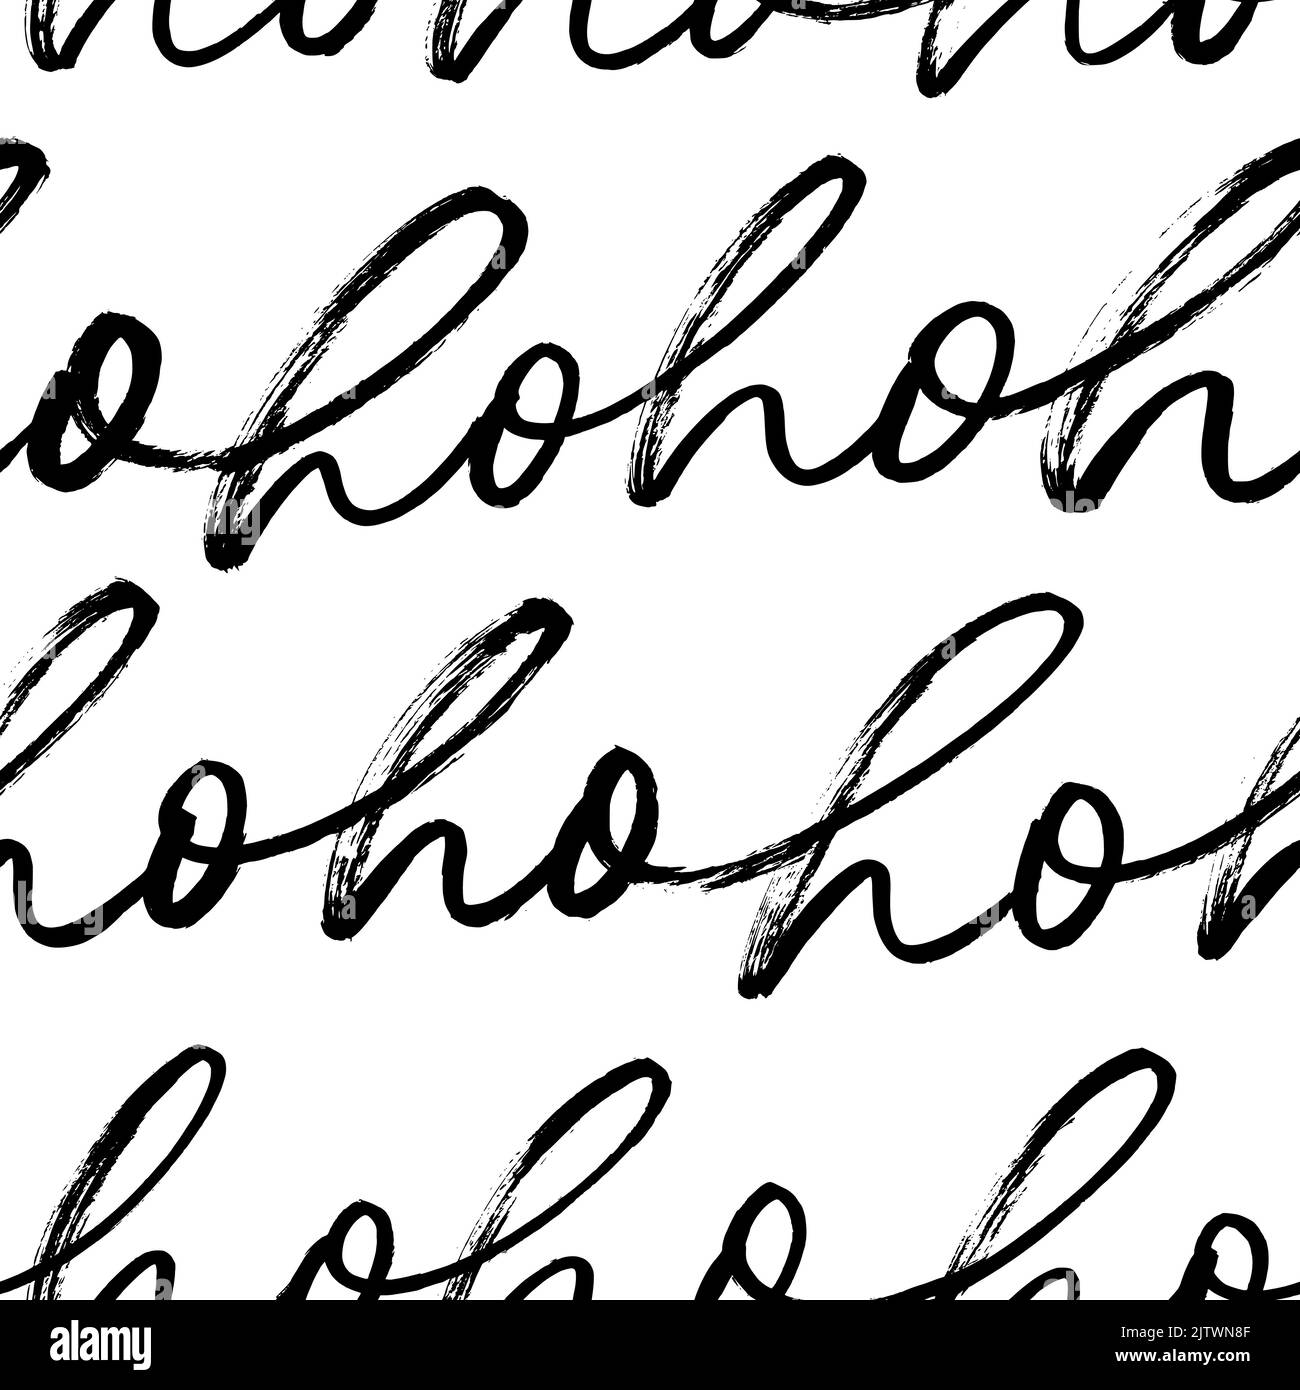 hohoho
ohohoh
hohohoh
hohoho
alamy
Image ID: 2JTWN8F
www.alamy.com